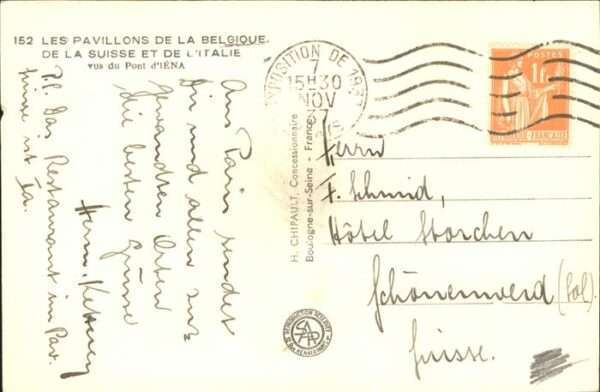 152 LES PAVILLONS DE LA BELGIQUE,
DE LA SUISSE ET DE L'ITALIE
vus du Pont d'IÉNA
Aus Paris sendet
Dir und allen
Gewandten Orten
die besten Grüsse
Herm.
P.S. Das Restaurant im Pav.
ist Ia.
H. CHIPAULT, Concessionnaire
Boulogne-sur-Seine - France
EXPOSITION DE 1937
7
15H30
NOV
37
PARIS
POSTES
1F
Herrn
F. Schmid,
Hôtel Storchen
Schönenwerd (Sol.)
Suisse.